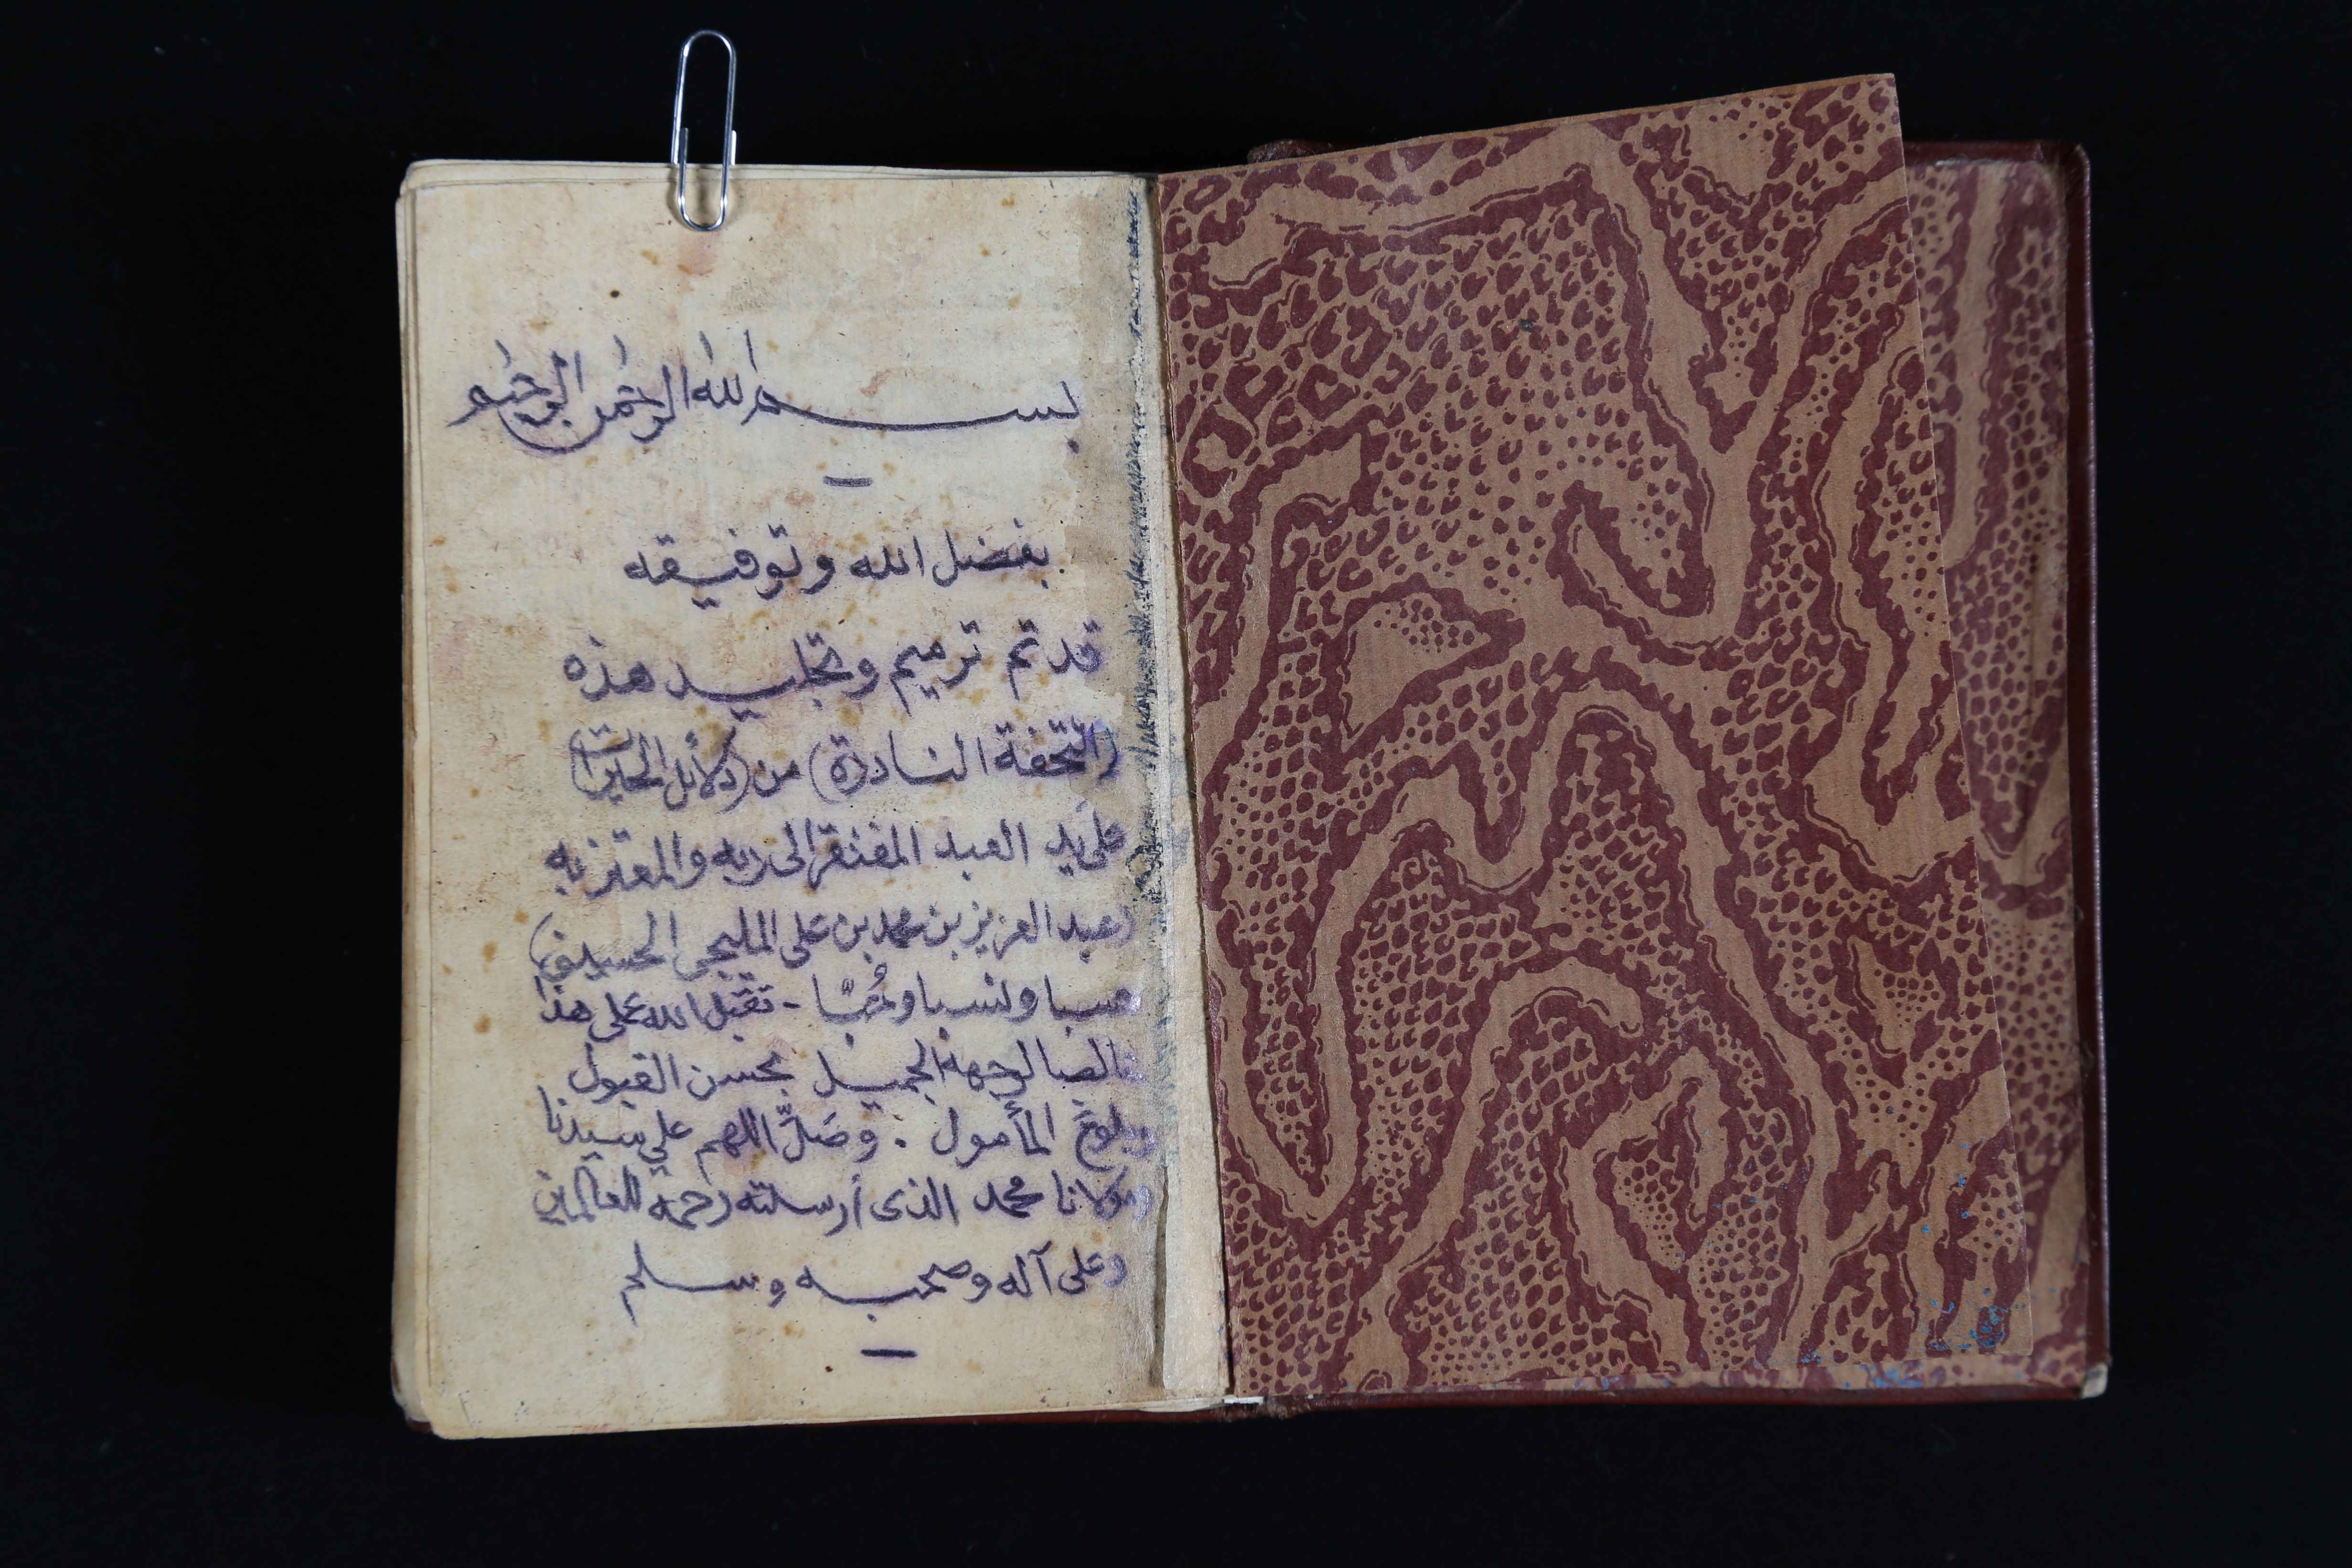 بسم الله الرحمن الرحيم
بفضل الله وتوفيقه
قد تم ترميم وتجليد هذه
(التحفة النادرة) من (دلائل الخيرات)
على يد العبد المفتقر الى ربه والمعتز به
(عبد العزيز بن محمد بن على المليجى الحسينى)
حسبا ونسبا وحُبّا - تقبل الله عملى هذا
خالصا لوجهه الجميل بحسن القبول
وبلوغ المأمول . وصَلِّ اللهم على سيدنا
ومولانا محمد الذى أرسلته رحمة للعالمين
وعلى آله وصحبه وسلم